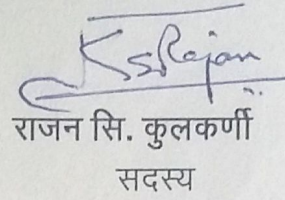 KSRajan
राजन सि. कुलकर्णी
सदस्य